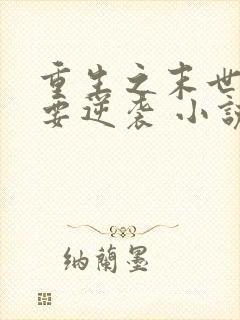 重生之末世
要逆袭 小説
纳蘭墨